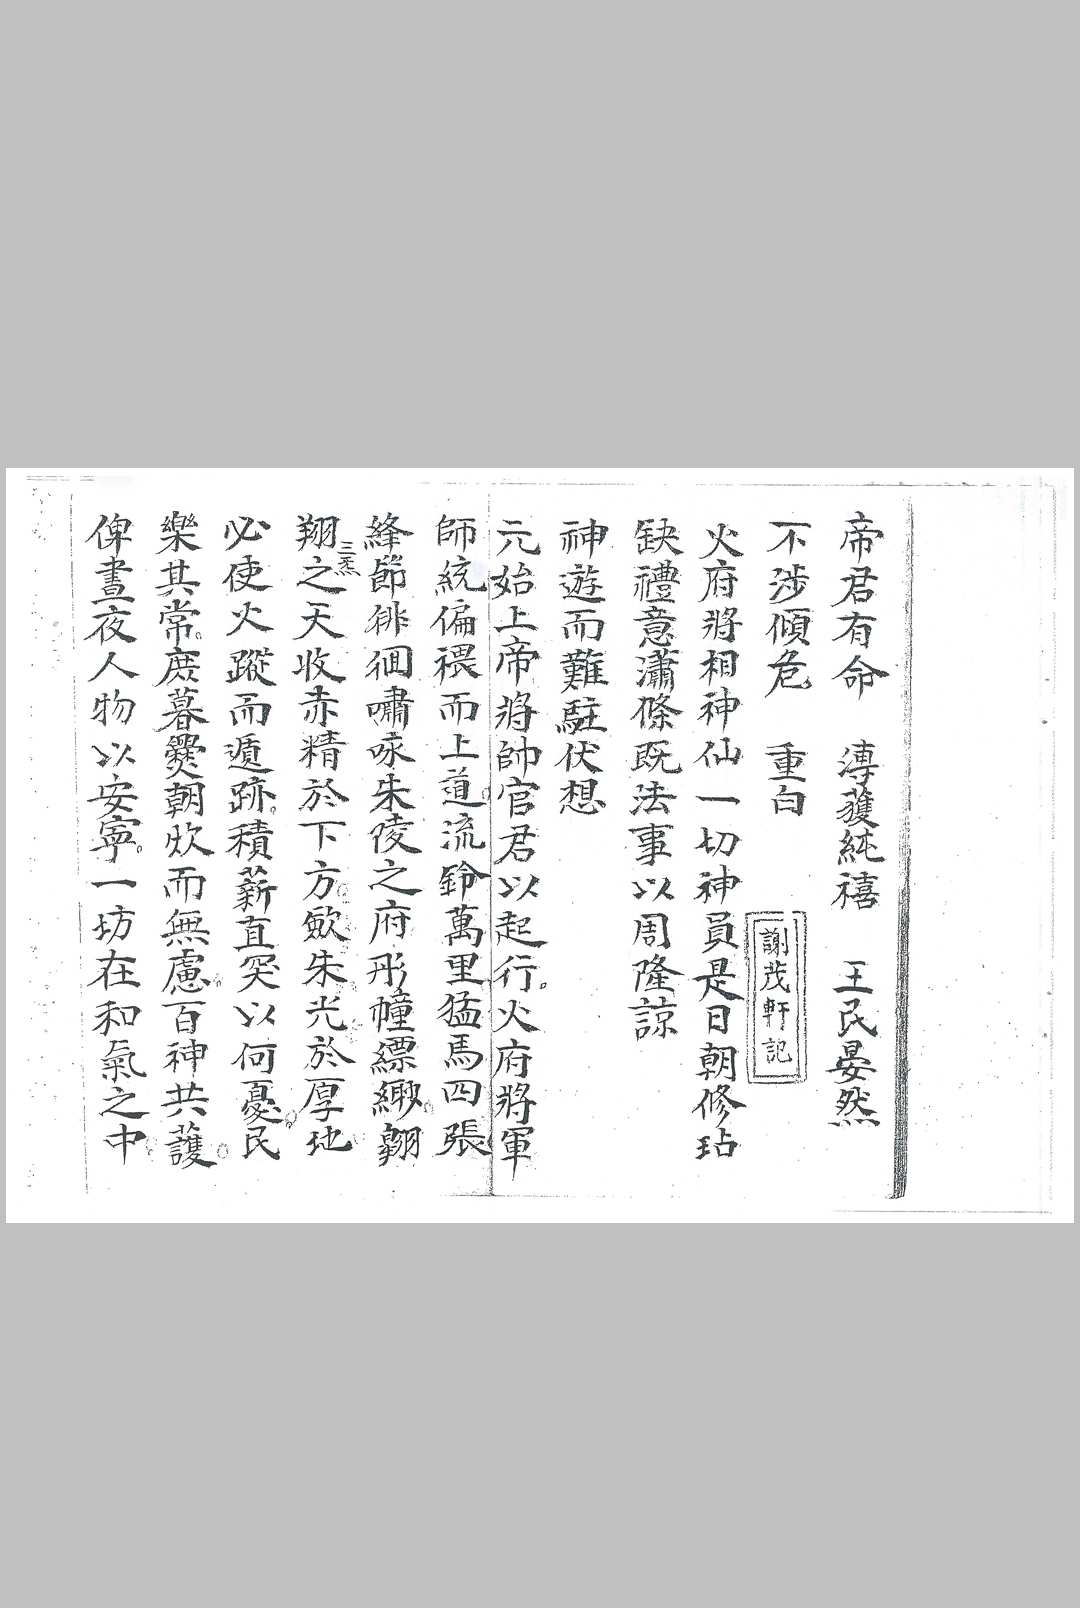 帝君有命　溥蒦純禧　王民晏然
不涉傾危　重白
謝茂軒記
火府將相神仙一切神員是日朝修玷
缺禮意瀟條既法事以周隆諒
神遊而難駐伏想
元始上帝將帥官君以起行。火府將軍
師統偏禩而上道。流鈴萬里猛馬四張
絳節徘徊嘯咏朱陵之府彤幢縹緲翱
翔之三炁天收赤精於下方歛朱光於厚地
必使火蹤而遁跡。積薪直突以何憂民
樂其常。庶暮爨朝炊而無慮。百神共護
俾晝夜人物以安寧。一坊在和氣之中